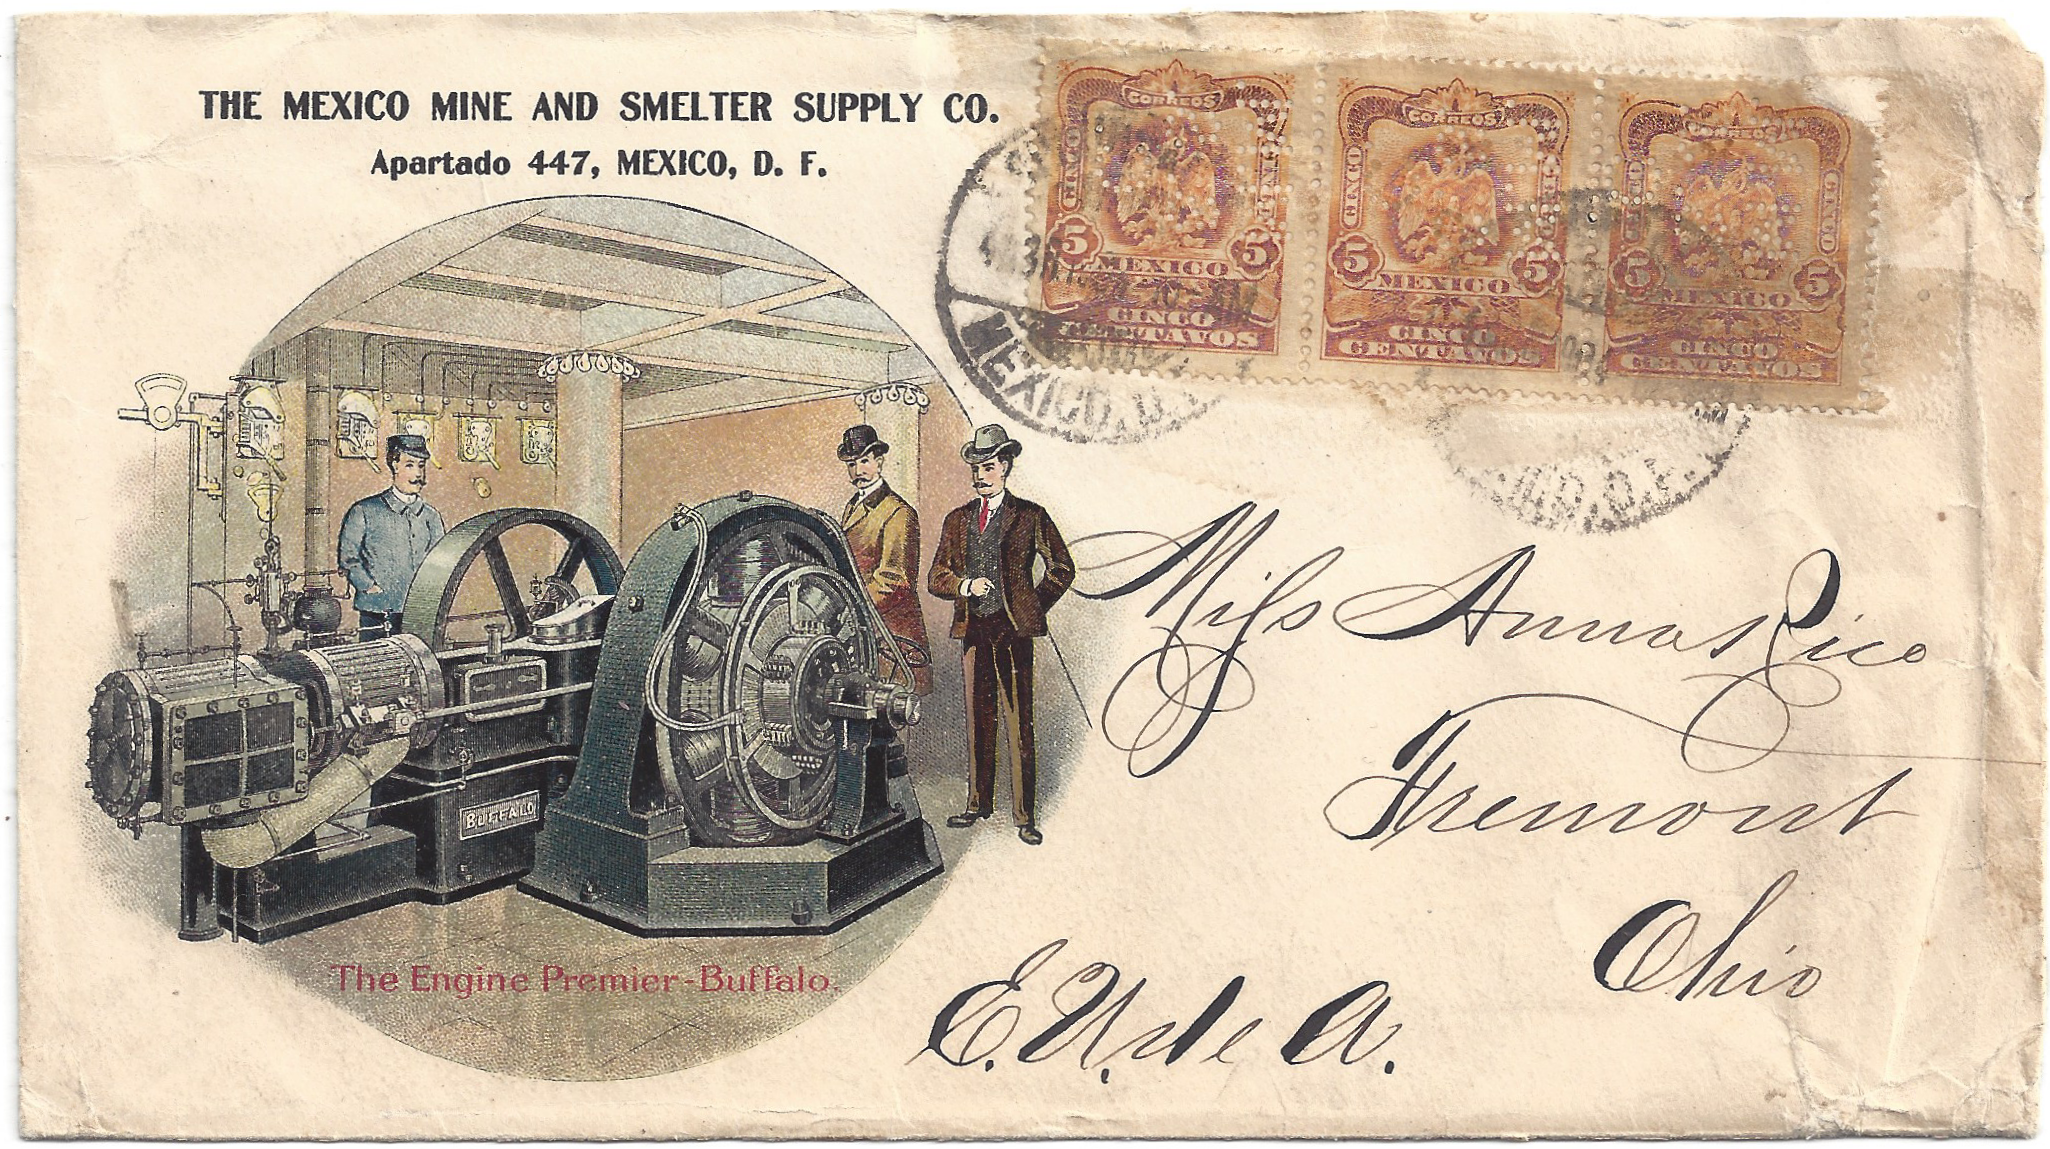 THE MEXICO MINE AND SMELTER SUPPLY CO.
Apartado 447, MEXICO, D. F.
CORREOS
CINCO
5 5
MEXICO
CINCO
CENTAVOS
CORREOS
CINCO
5 5
MEXICO
CINCO
CENTAVOS
CORREOS
CINCO
5 5
MEXICO
CINCO
CENTAVOS
MEXICO, D. F.
D. F.
BUFFALO
The Engine Premier-Buffalo.
Miss Anna Rico
Fremont
Ohio
E. U. de A.